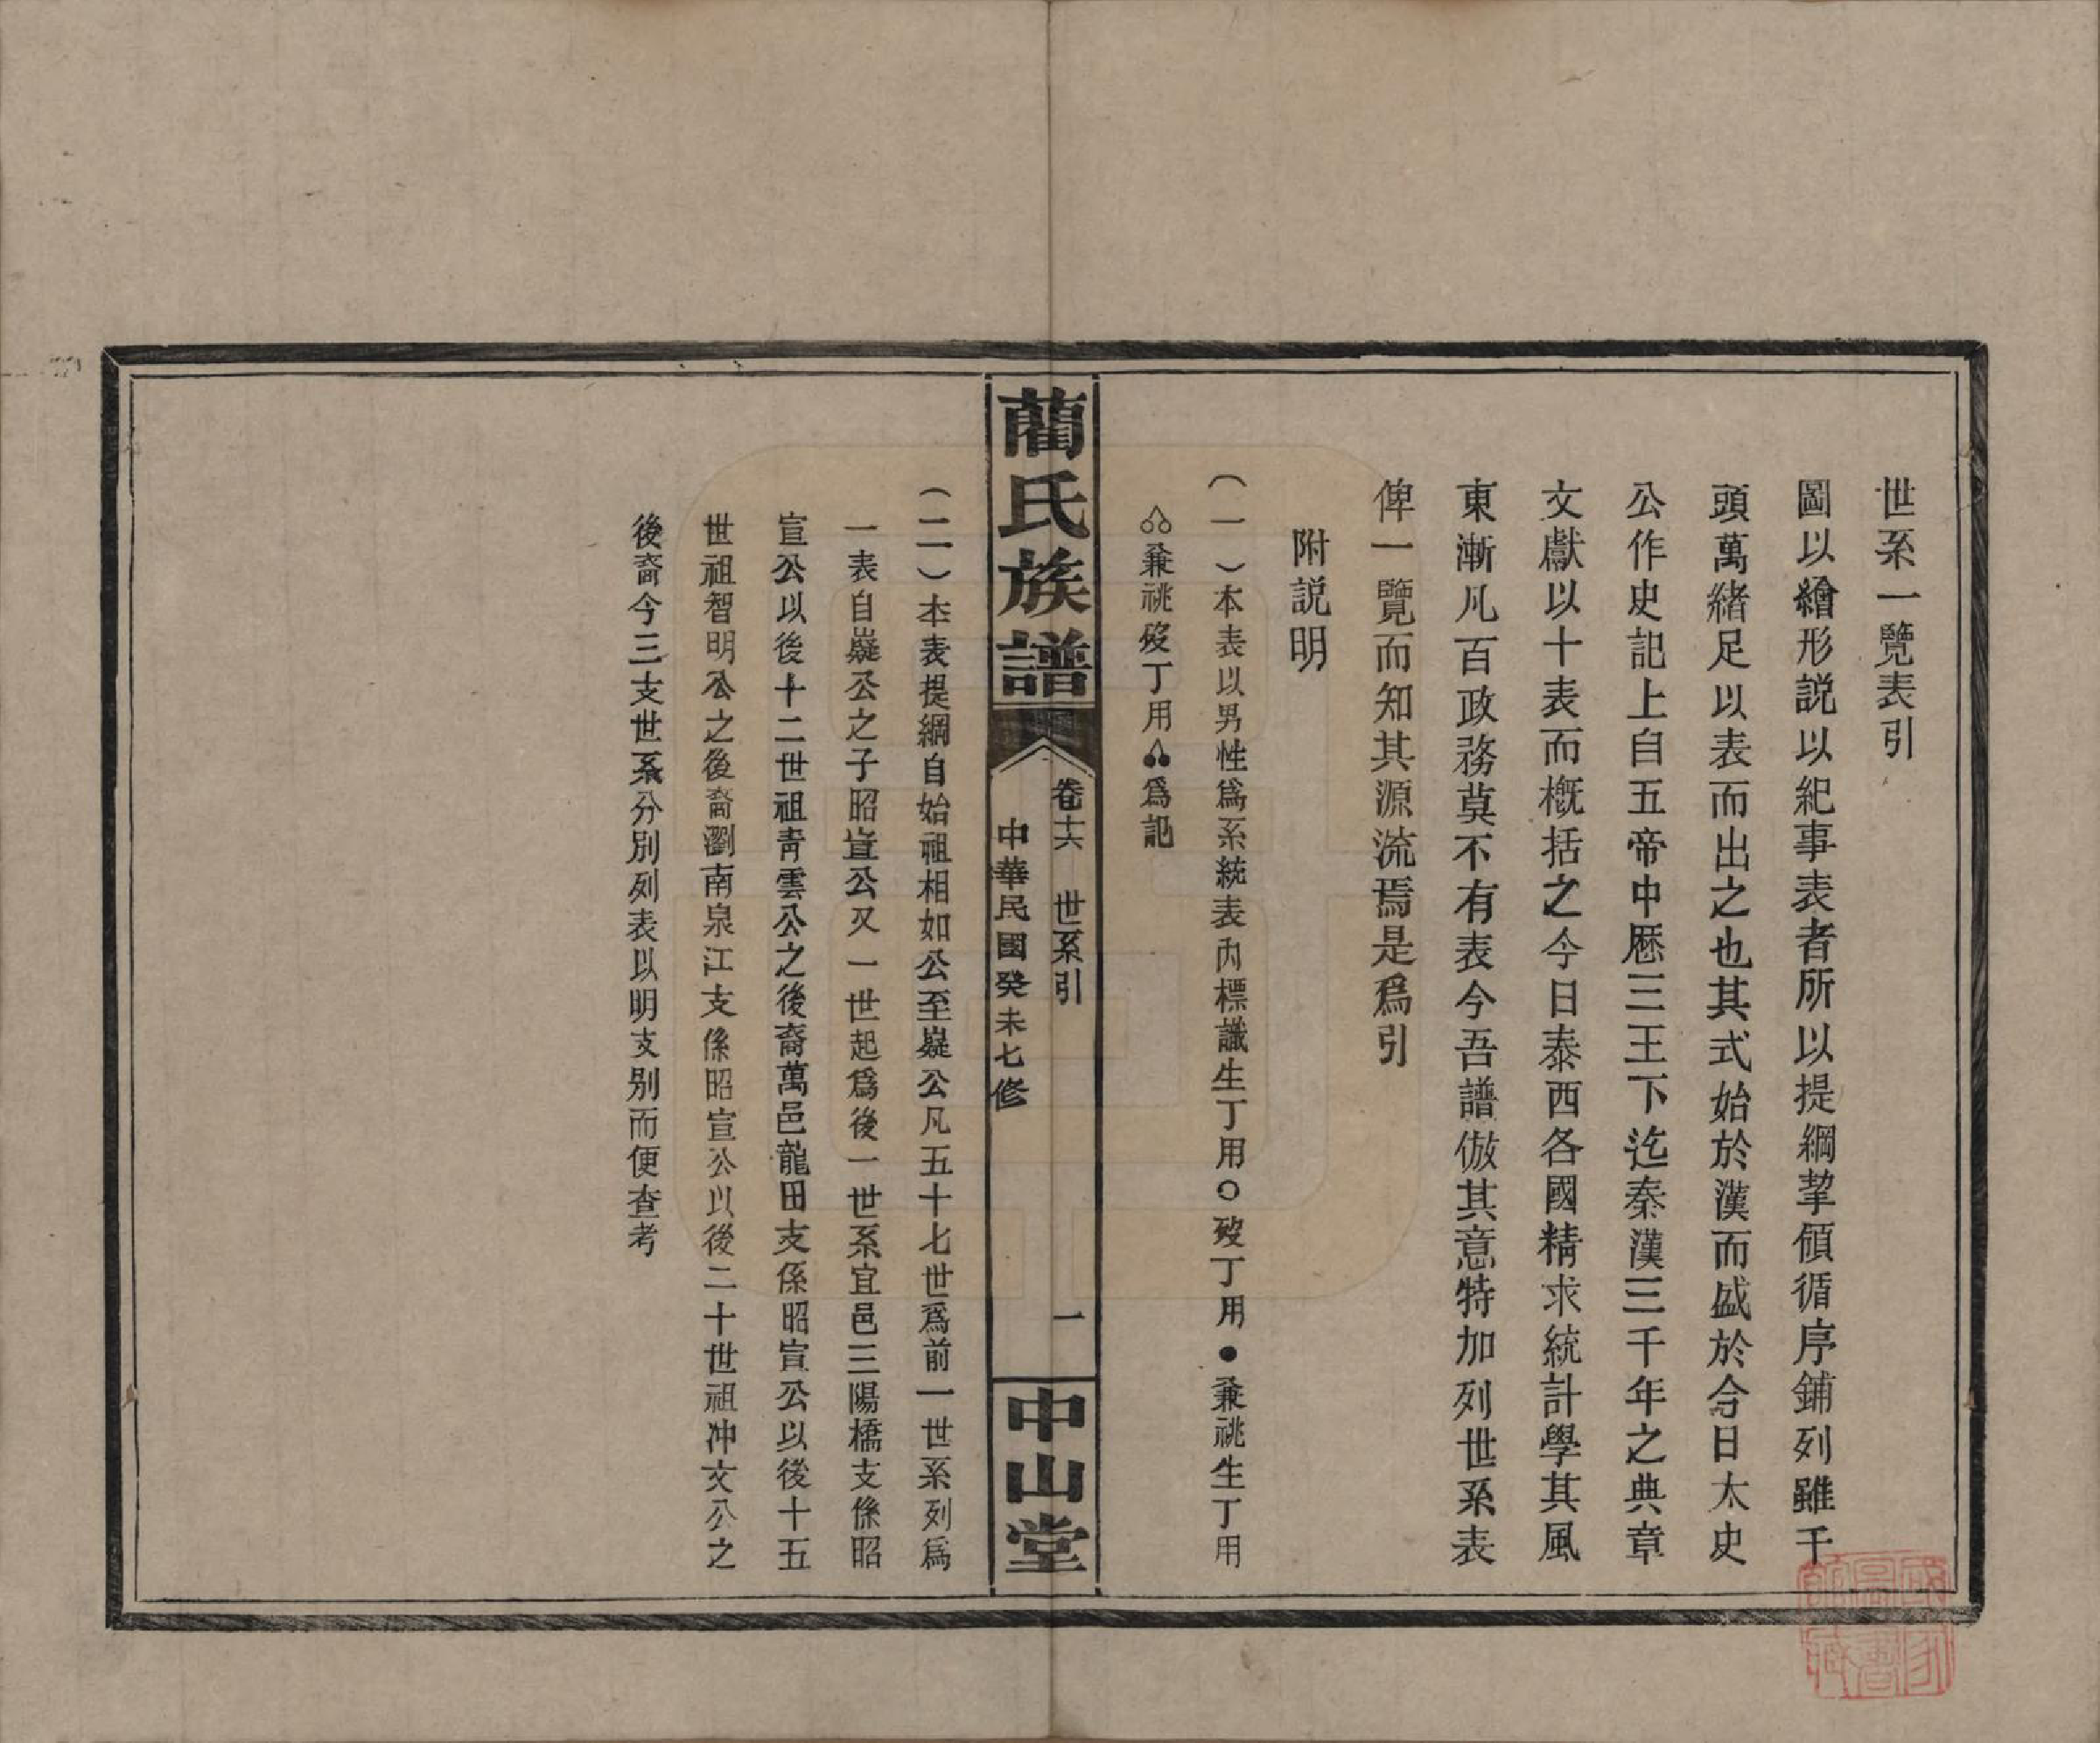 世系一覽表引
圖以繪形説以紀事表者所以提綱挈領循序鋪列雖千
頭萬緒足以表而出之也其式始於漢而盛於今日太史
公作史記上自五帝中歷三王下迄秦漢三千年之典章
文獻以十表而概括之今日泰西各國精求統計學其風
東漸凡百政務莫不有表今吾譜倣其意特加列世系表
俾一覽而知其源流焉是爲引
附説明
（一）本表以男性爲系統表內標識生丁用○歿丁用●兼祧生丁用
兼祧歿丁用爲記
藺氏族譜
卷十六 世系引 一
中華民國癸未七修
中山堂
（二）本表提綱自始祖相如公至嶷公凡五十七世爲前一世系列爲
一表自嶷公之子昭宣公又一世起爲後一世系宜邑三陽橋支係昭
宣公以後十二世祖青雲公之後裔萬邑龍田支係昭宣公以後十五
世祖智明公之後裔瀏南泉江支係昭宣公以後二十世祖冲文公之
後裔今三支世系分別列表以明支别而便查考